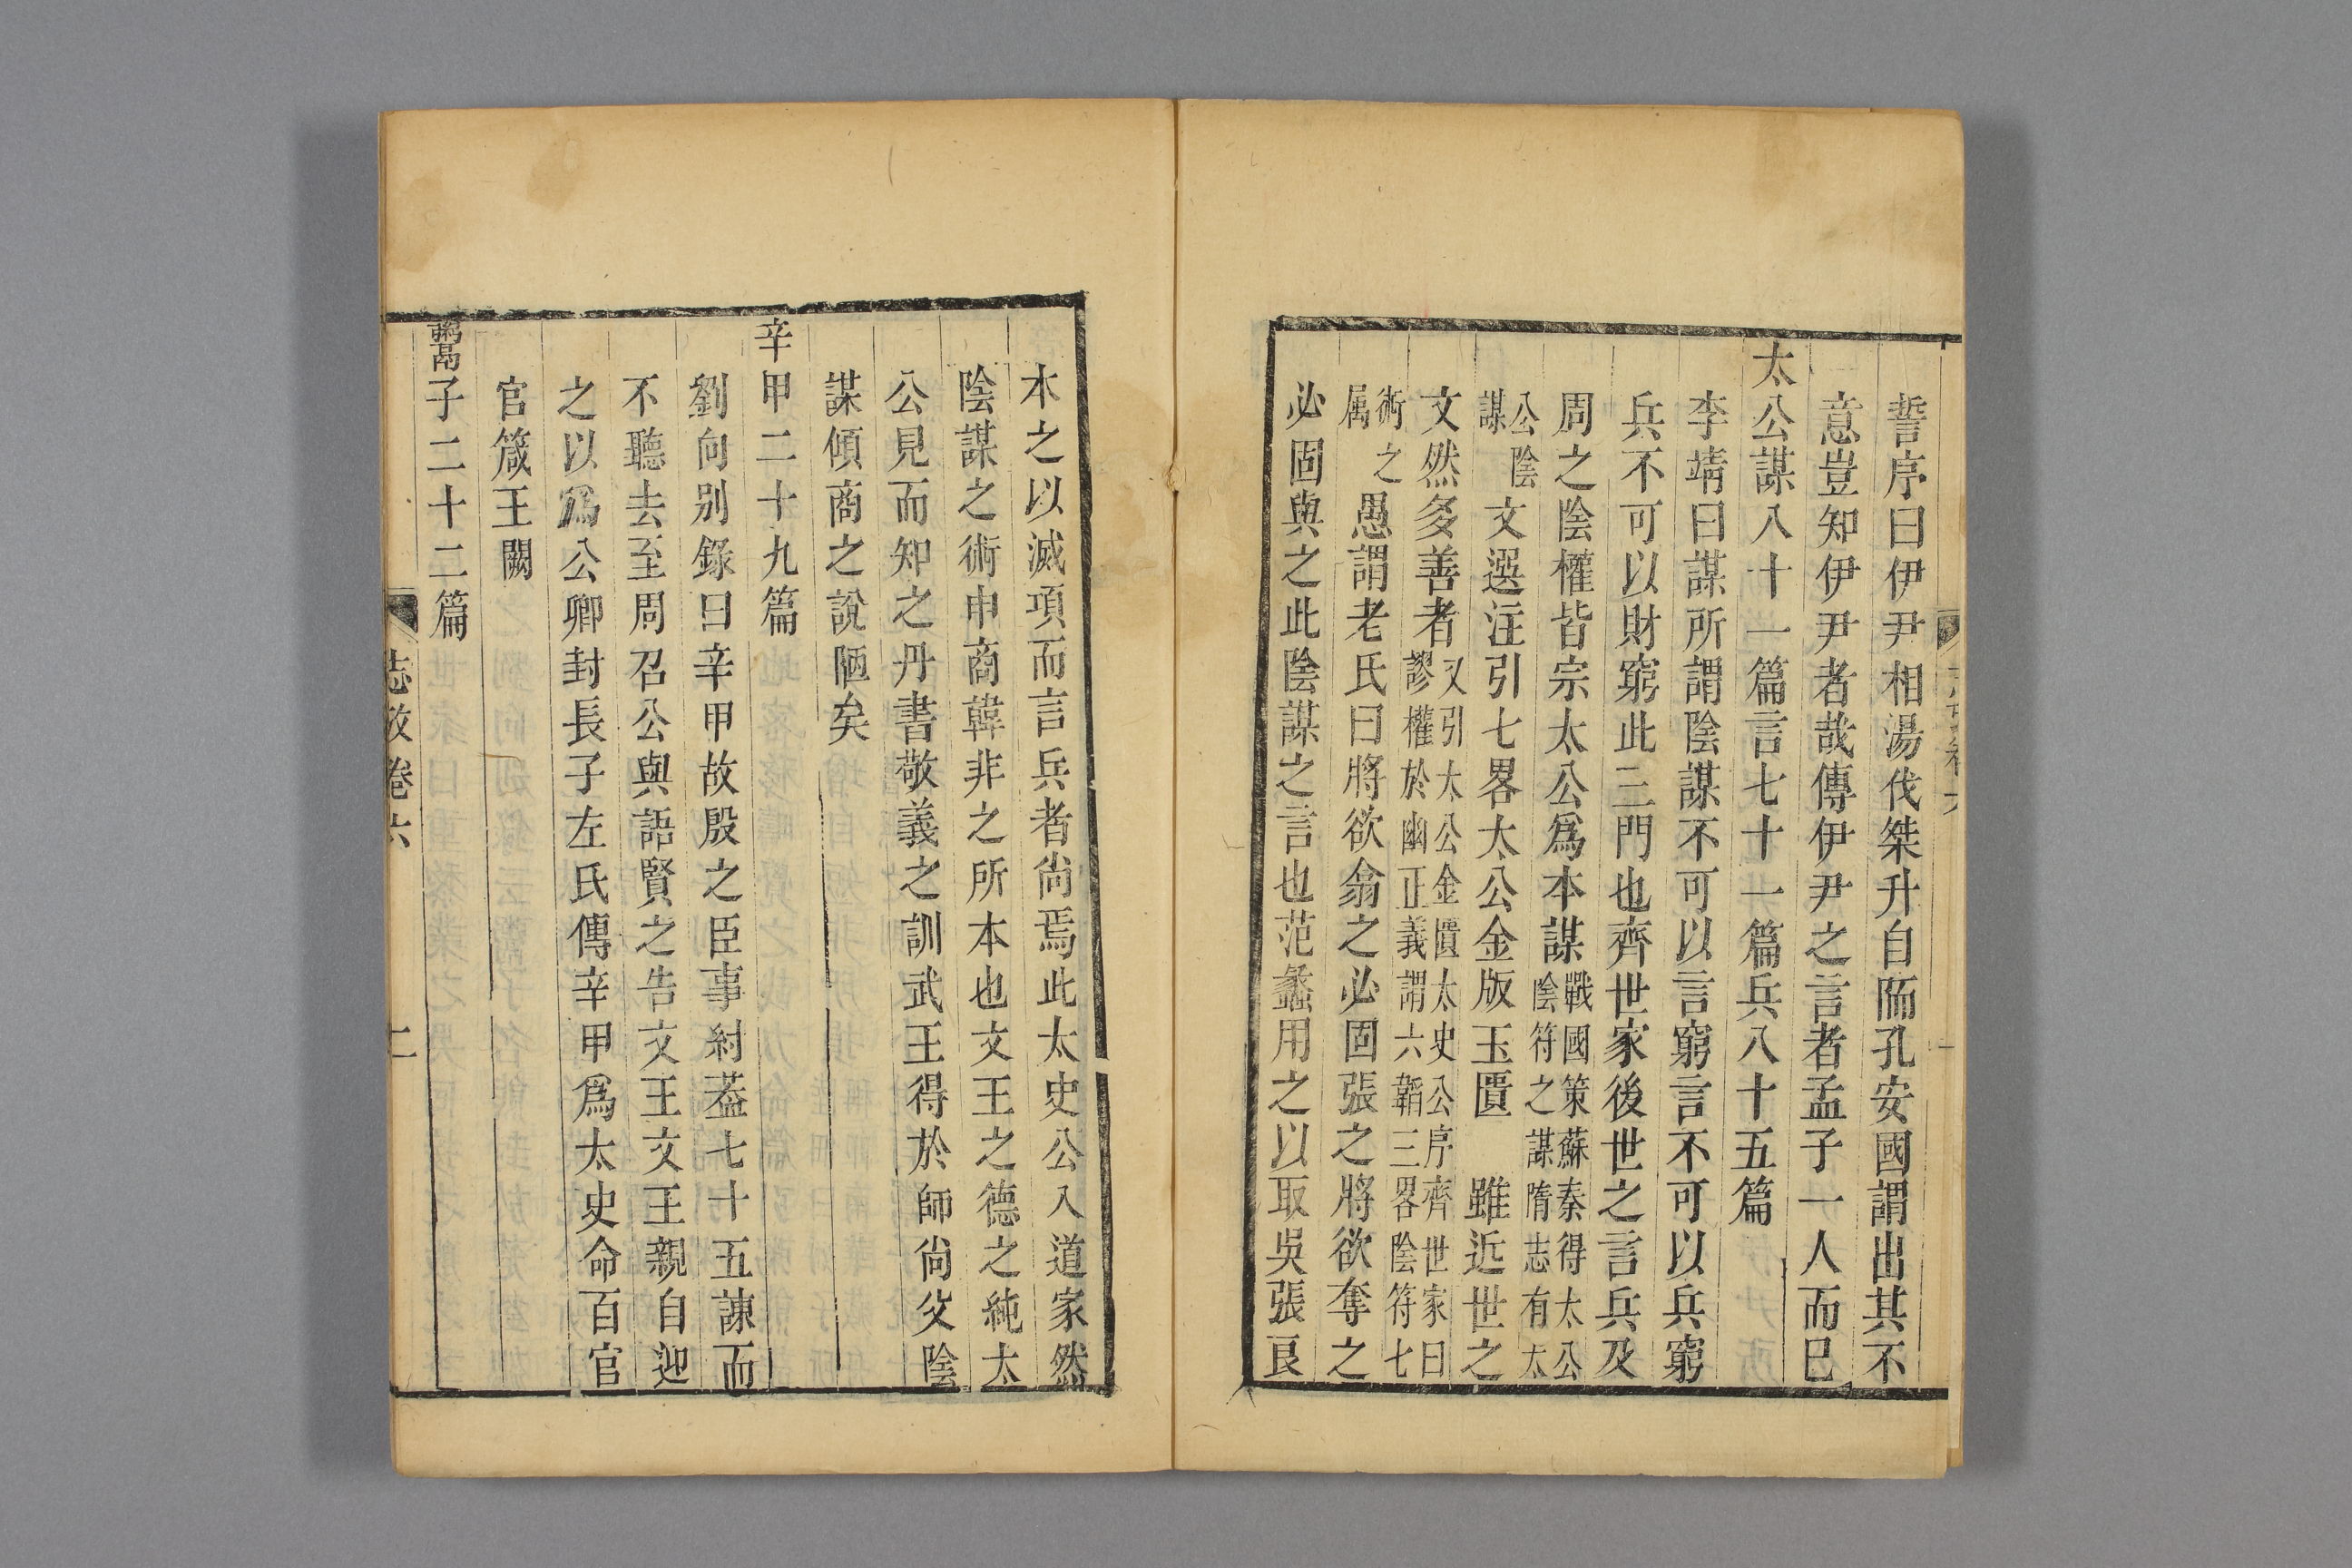 誓序曰伊尹相湯伐桀升自陑孔安國謂出其不
意豈知伊尹者哉傳伊尹之言者孟子一人而已
太公謀八十一篇言七十一篇兵八十五篇
李靖曰謀所謂陰謀不可以言窮言不可以兵窮
兵不可以財窮此三門也齊世家後世之言兵及
周之陰權皆宗太公爲本謀戰國策蘇秦得太公
陰符之謀隋志有太
公陰
謀文選注引七畧太公金版玉匱雖近世之
文然多善者又引太公金匱太史公序齊世家曰
謬權於幽正義謂六韜三畧陰符七
術之
属愚謂老氏曰將欲翕之必固張之將欲奪之
必固與之此陰謀之言也范蠡用之以取吳張良
本之以滅項而言兵者尚焉此太史公入道家然
陰謀之術申商韓非之所本也文王之德之純太
公見而知之丹書敬義之訓武王得於師尚父陰
謀傾商之說陋矣
辛甲二十九篇
劉向别錄曰辛甲故殷之臣事紂葢七十五諫而
不聽去至周召公與語賢之告文王文王親自迎
之以爲公卿封長子左氏傳辛甲爲太史命百官
官箴王闕
鬻子二十二篇
志攷卷六
二